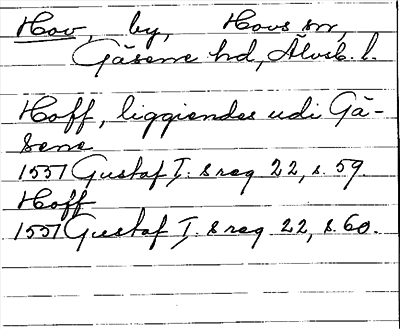 Hov, by, Hovs sn,
Gäsene hd, Älvsb. l.
Hoff, liggiendes udi Gä-
sene
1551 Gustaf I: s reg 22, s. 59.
Hoff
1551 Gustaf I: s reg 22, s. 60.